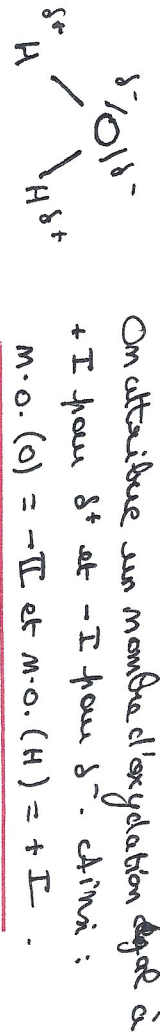 δ⁻ δ⁻
|O|
δ⁺ H H δ⁺
On attribue un nombre d'oxydation égal à
+I pour δ⁺ et -I pour δ⁻. Ainsi :
n.o.(O) = -II et n.o.(H) = +I.